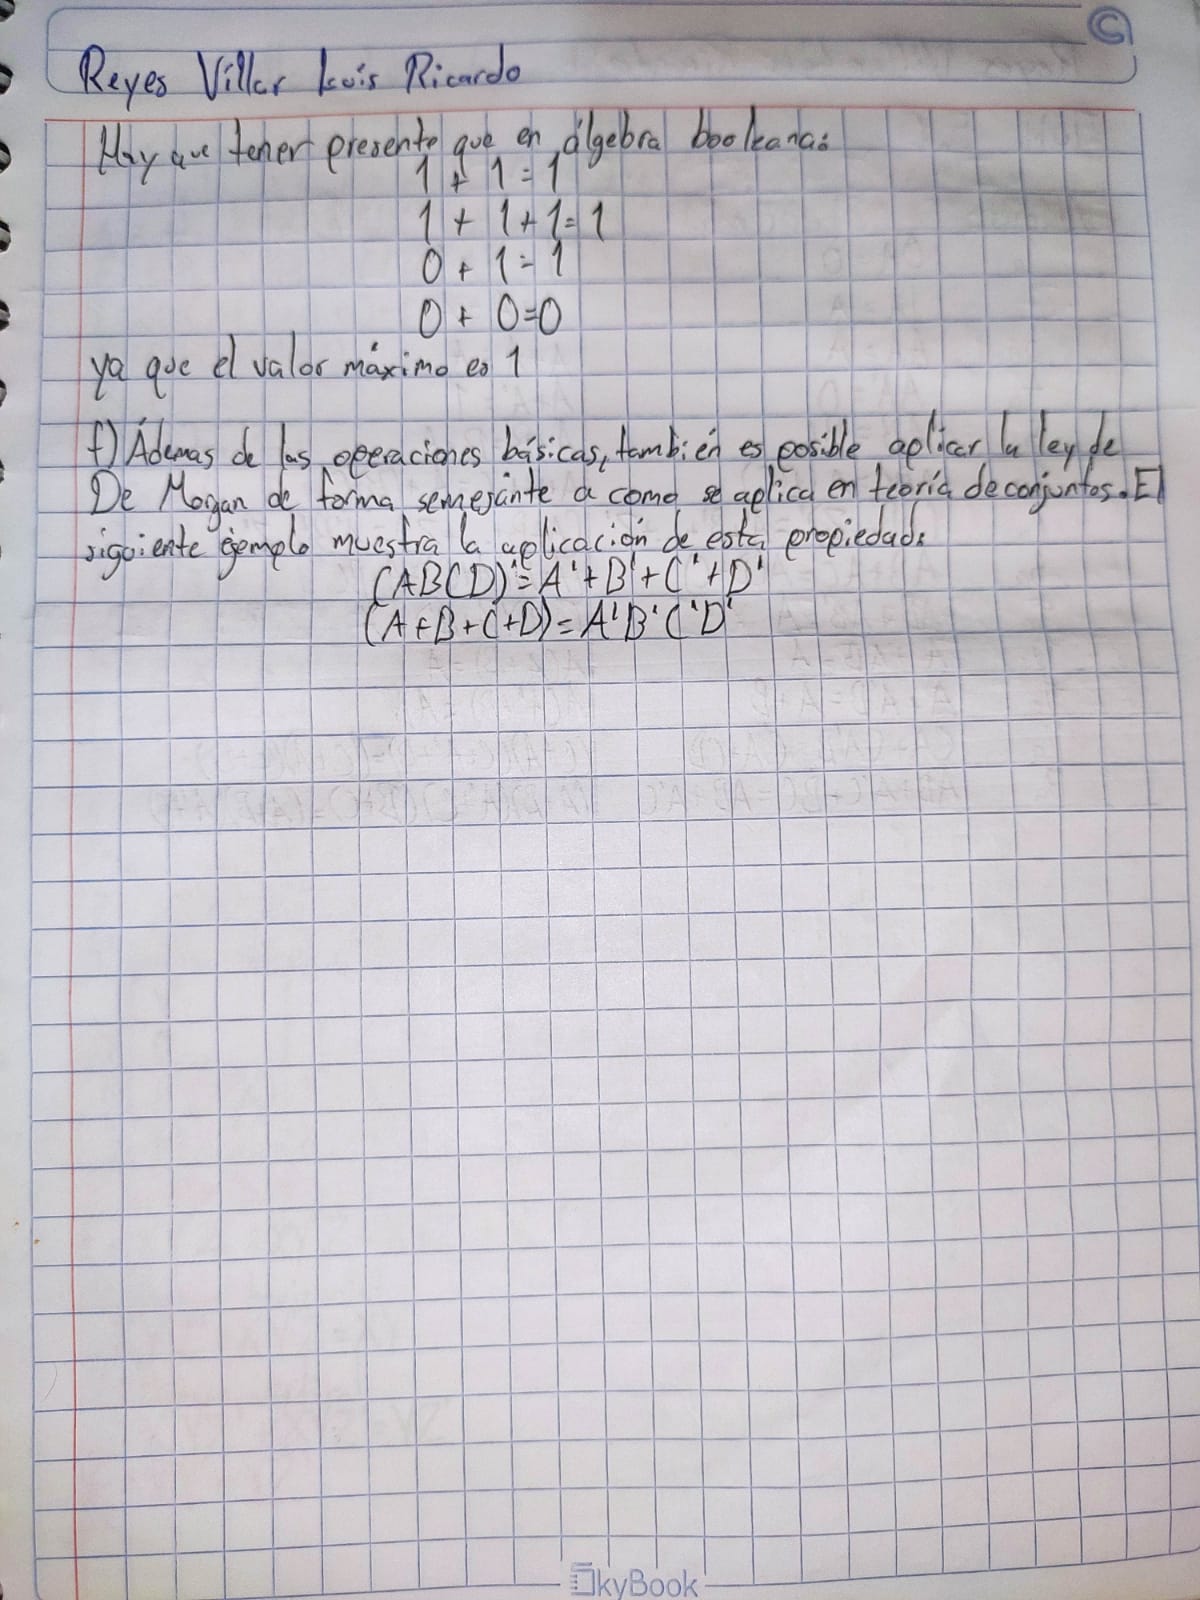 Reyes Villar Luis Ricardo
Hay que tener presente que en álgebra booleana:
1 + 1 = 1
1 + 1 + 1 = 1
0 + 1 = 1
0 + 0 = 0
ya que el valor máximo es 1
f) Ádemas de las operaciones básicas, también es posible aplicar la ley de
De Mogan de forma semejante a como se aplica en teoría de conjuntos. El
siguiente ejemplo muestra la aplicación de esta propiedad:
(ABCD)' = A' + B' + C' + D'
(A + B + C + D) = A'B'C'D'
SkyBook